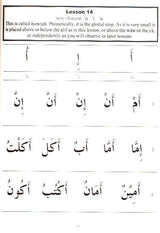 Lesson 14
This is called hamzah. Phonetically, it is the glottal stop. As it is very small it
is placed above or below the alif as in this lesson, or above the wāw or the yā,
or independently as you will observe in later lessons
أَ إِ أُ
أَمْ أَنْ إِنْ أَنَّ إِنَّ
إِمَّا أَمَّا أَبٌ أَكَلَ أَكَلْتُ
أَمِينٌ أَمَانٌ أَكْتُبُ أَكُونُ